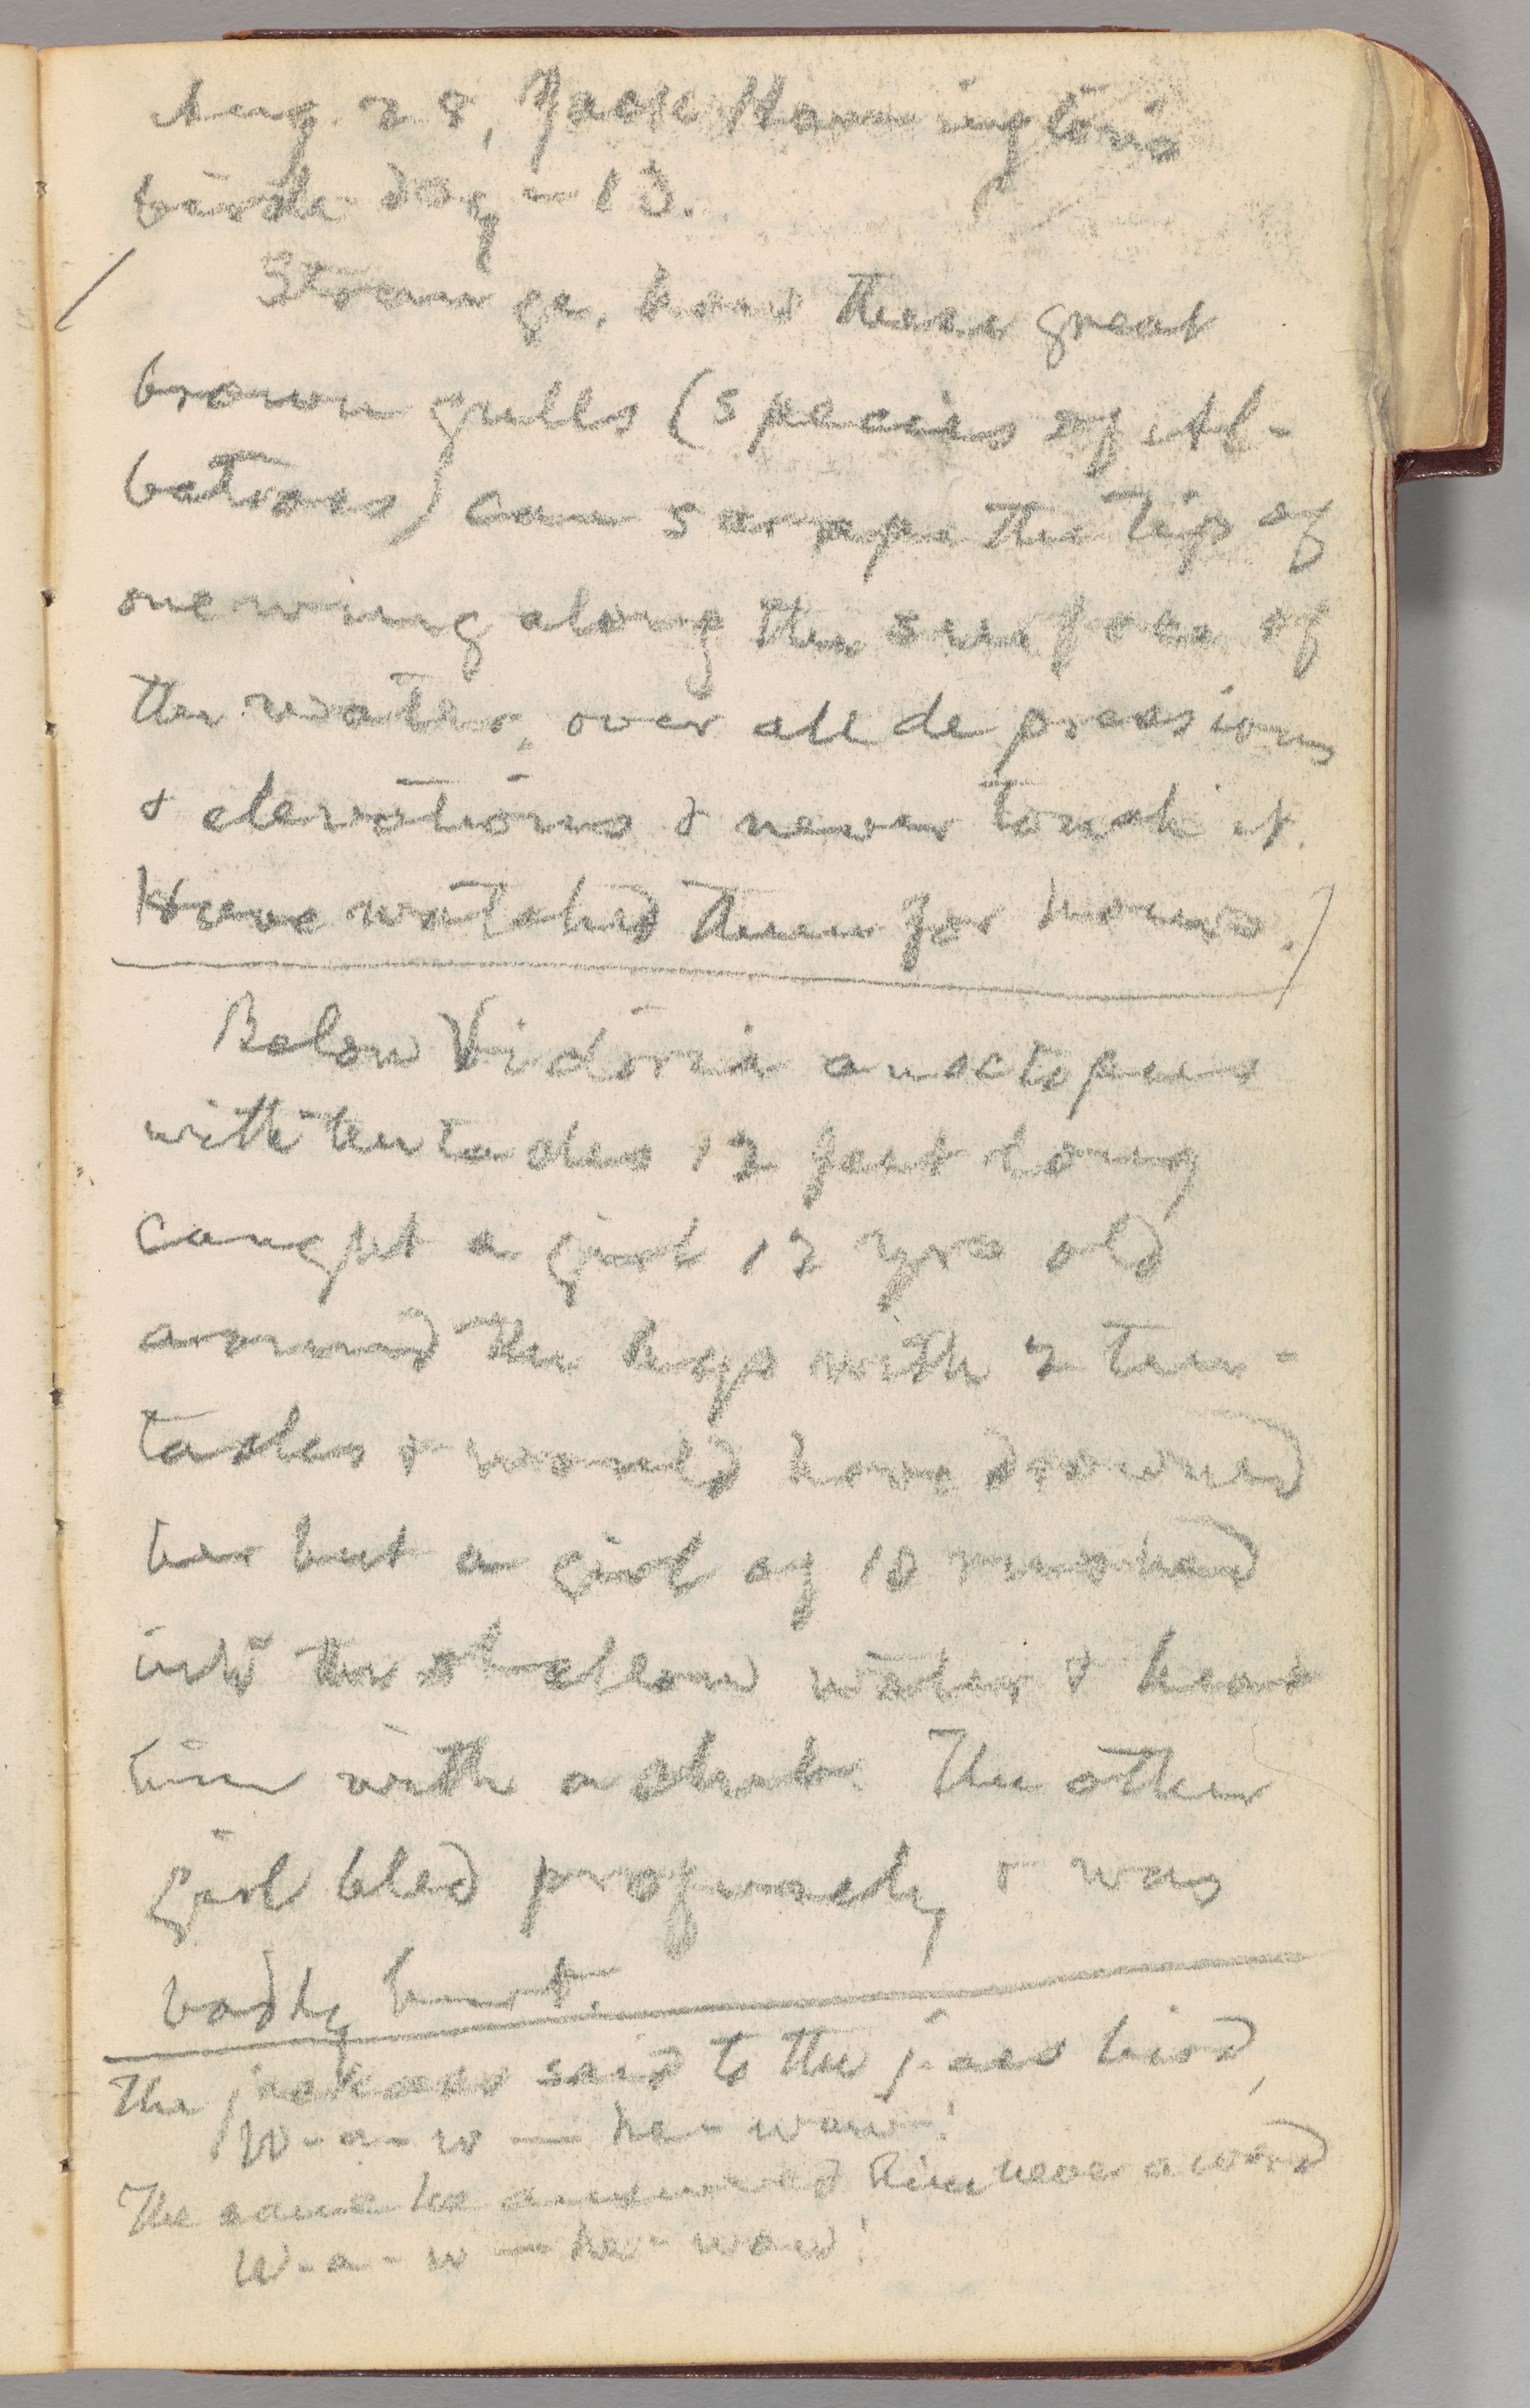 Aug. 28, Jack Harrington's
birth-day — 13.
Strange, how these great
brown gulls (species of Al-
batross) can scrape the tip of
one wing along the surface of
the water, over all depressions
& elevations & never touch it.
Have watched them for hours.
Below Victoria an octopus
with tentacles 12 feet long
caught a girl 12 yrs old
around the legs with 2 ten-
tacles & would have drowned
her but a girl of 18 rushed
into the shallow water & beat
him with a club. The other
girl bled profusely & was
badly hurt.
The jackass said to the jass bird,
W-a-w — he-waw!
The same he answered him never a word
W-a-w — he-waw!